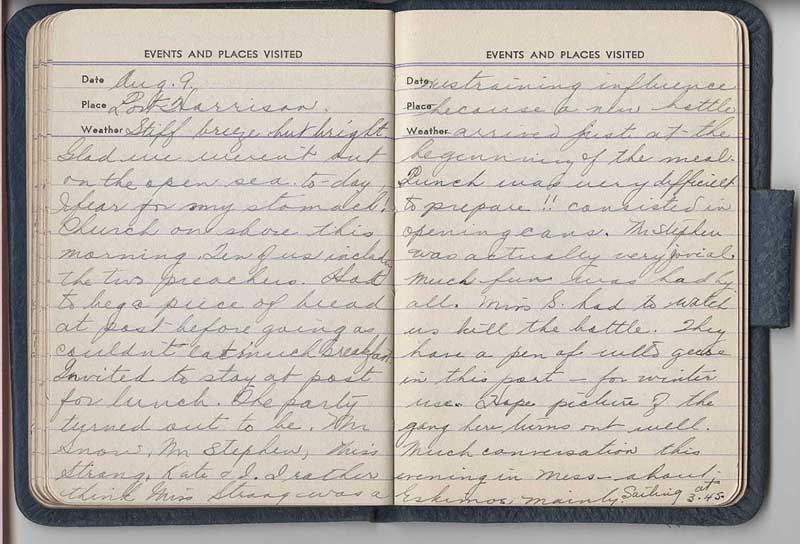 EVENTS AND PLACES VISITED
Date Aug. 9.
Place Port Harrison.
Weather Stiff breeze but bright
Glad we weren't out
on the open sea to-day,
I fear for my stomach!
Church on shore this
morning. Ten of us including
the two preachers. Had
to beg a piece of bread
at post before going as
couldn't eat much breakfast.
Invited to stay at post
for lunch. The party
turned out to be. Mr
Snow, Mr Stephen, Miss
Strang, Kate & I. I rather
think Miss Strang was a
EVENTS AND PLACES VISITED
Date restraining influence
Place because a new bottle
Weather arrived just at the
beginning of the meal.
Lunch was very difficult
to prepare!! consisted in
opening cans. Mr Stephen
was actually very jovial.
Much fun was had by
all. Miss S. had to watch
us kill the bottle. They
have a pen of wild geese
in this port — for winter
use. Hope picture of the
gang here turns out well.
Much conversation this
evening in Mess — about
Eskimos mainly. Sailing at
3.45.